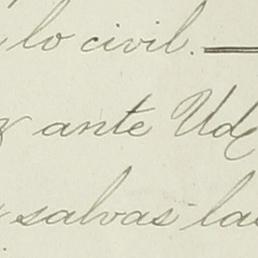 lo civil.
ante Ud
salvas las